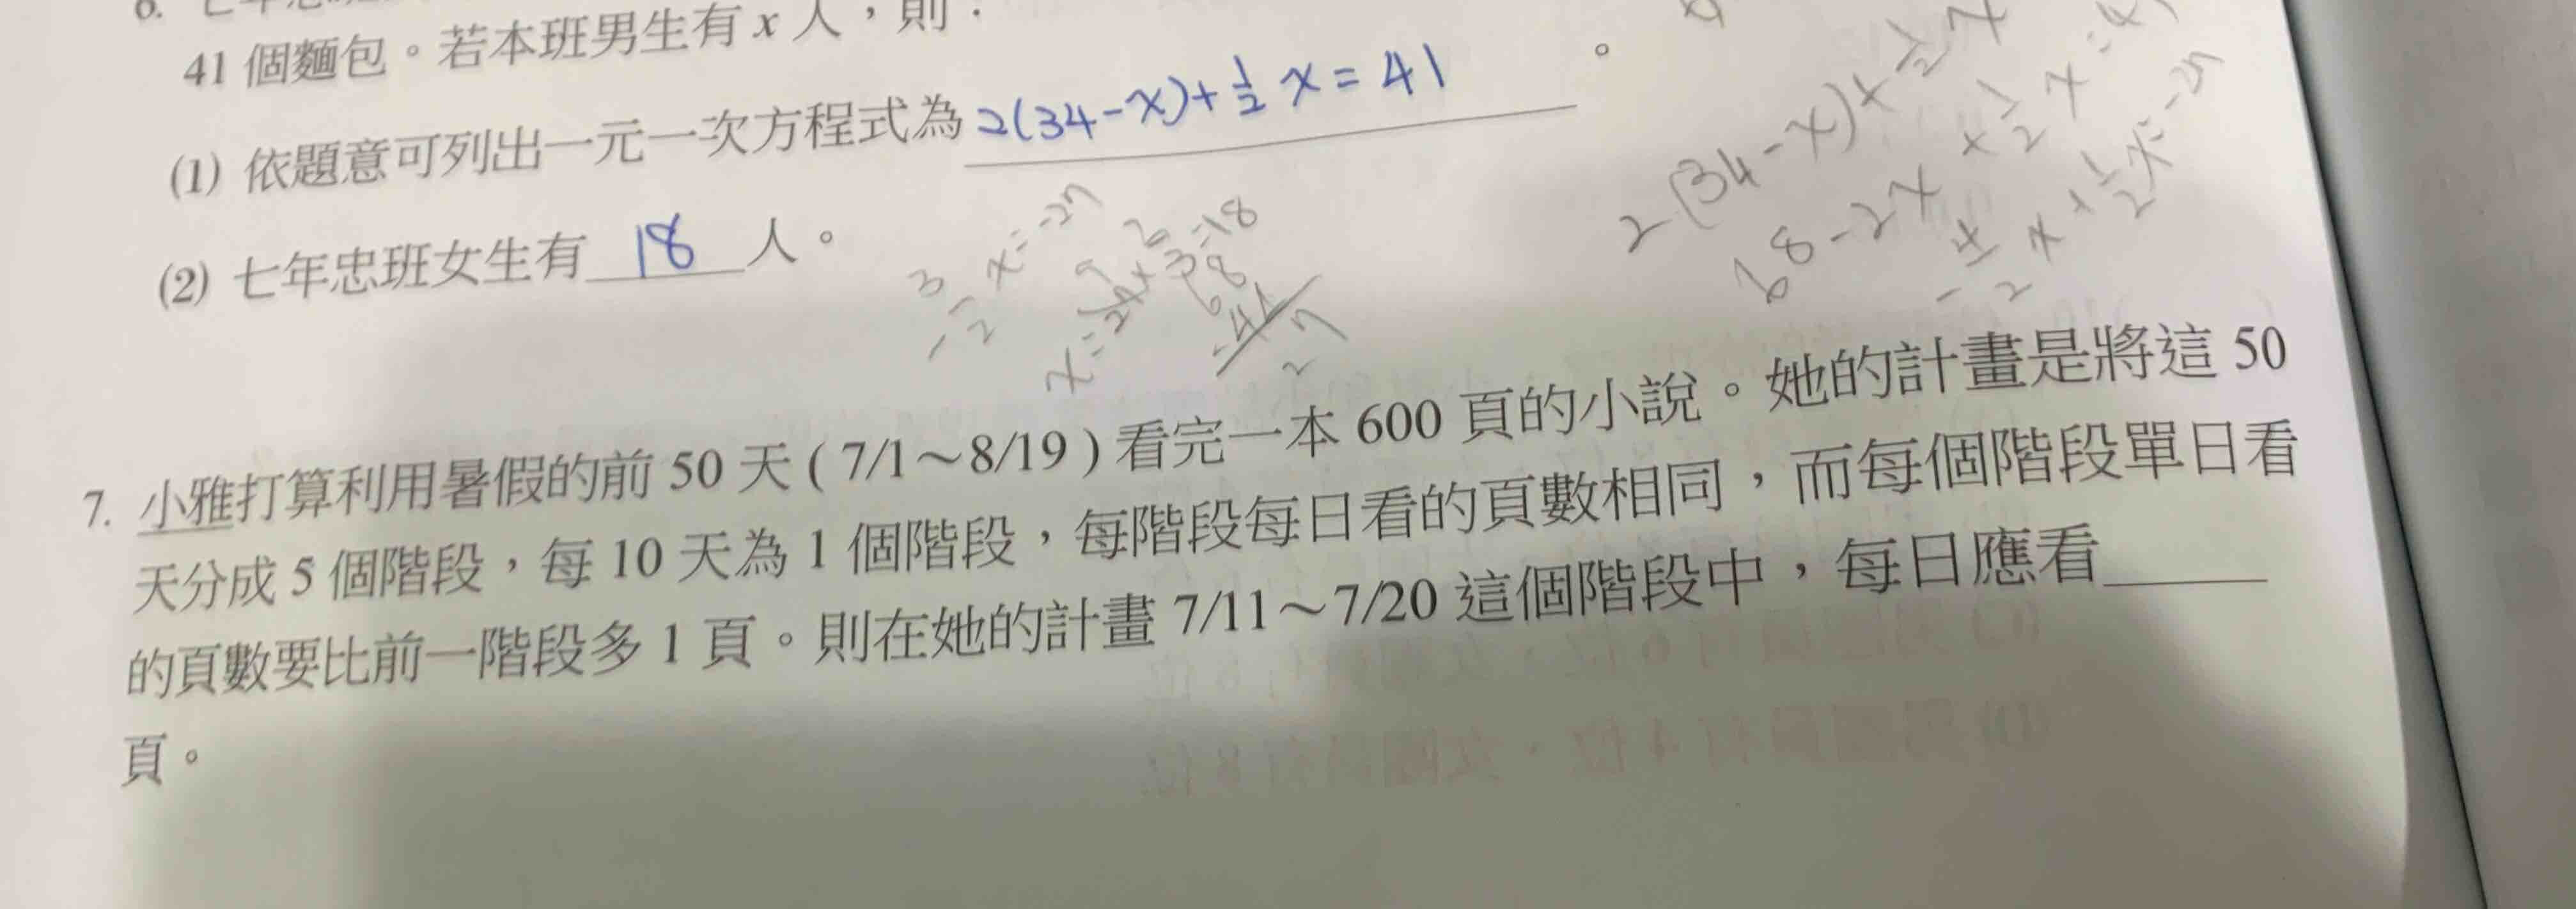 41 個麵包。若本班男生有 x 人，則：
(1) 依題意可列出一元一次方程式為 2(34-x)+½x=41 。
(2) 七年忠班女生有 18 人。
2(34-x)+½x
68-2x+½x=41
-4/2x+½x=-27
-3/2x=-27
x=27×2/3=18
68
-41
27
7. 小雅打算利用暑假的前 50 天 ( 7/1～8/19 ) 看完一本 600 頁的小說。她的計畫是將這 50
天分成 5 個階段，每 10 天為 1 個階段，每階段每日看的頁數相同，而每個階段單日看
的頁數要比前一階段多 1 頁。則在她的計畫 7/11～7/20 這個階段中，每日應看
頁。